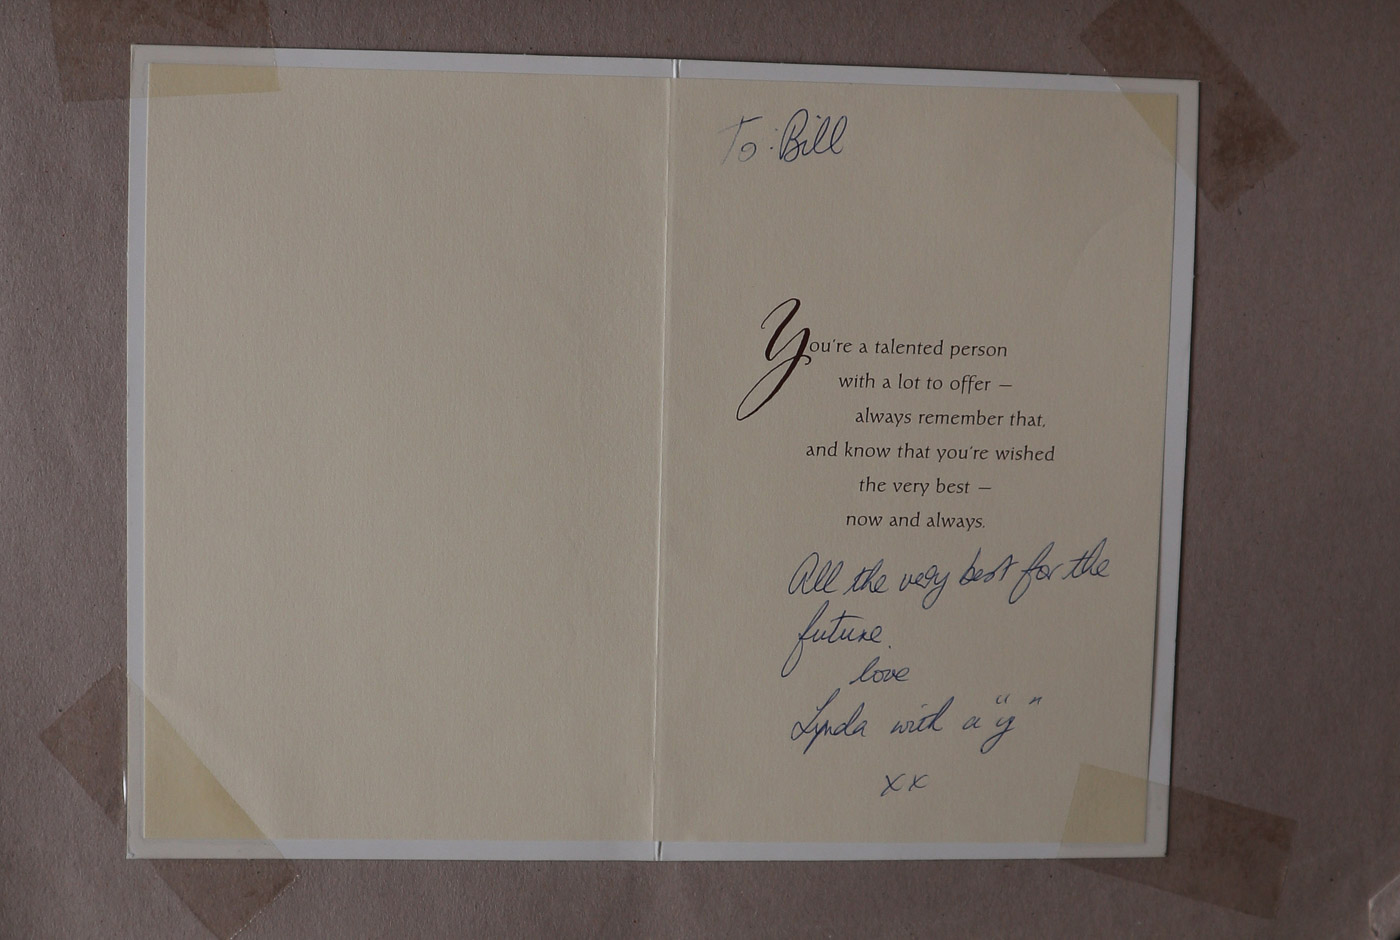 To: Bill
You're a talented person
with a lot to offer —
always remember that,
and know that you're wished
the very best —
now and always.
All the very best for the
future.
love
Lynda with a "y"
xx